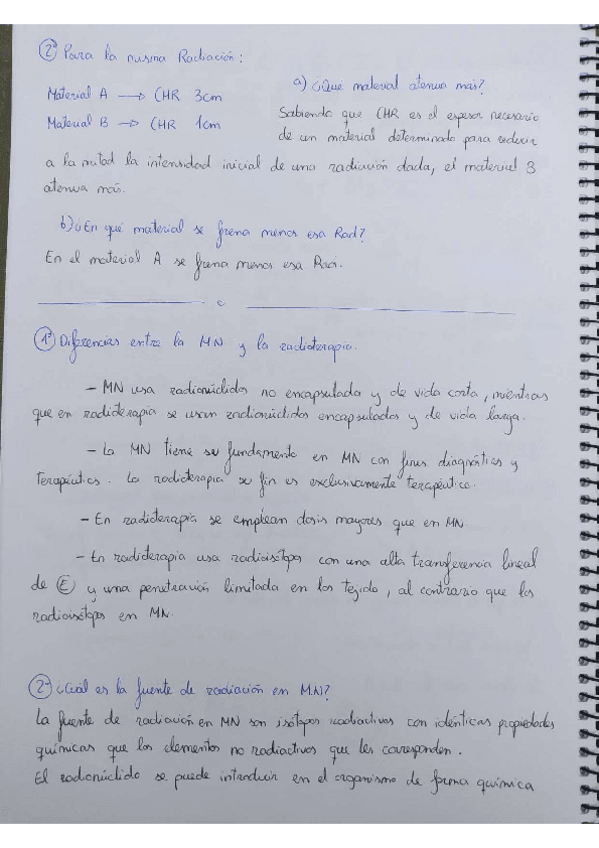 2º Para la misma Radiación:
Material A → CHR 3cm
Material B → CHR 1cm
a) ¿Que material atenua más?
Sabiendo que CHR es el espesor necesario
de un material determinado para reducir
a la mitad la intensidad inicial de una radiación dada, el material B
atenua más.
b) ¿En qué material se frena menos esa Rad?
En el material A se frena menos esa Rad.
1º Diferencias entre la MN y la radioterapia.
- MN usa radionúclidos no encapsulada y de vida corta, mientras
que en radioterapia se usan radionúclidos encapsulados y de vida larga.
- La MN tiene su fundamento en MN con fines diagnóstics y
terapéutics. La radioterapia su fin es exclusivamente terapéutico.
- En radioterapia se emplean dosis mayores que en MN
- En radioterapia usa radioisótopos con una alta transferencia lineal
de E y una penetración limitada en los tejido, al contrario que los
radioisótopos en MN.
2º ¿Cuál es la fuente de radiación en MN?
La fuente de radiación en MN son isótopos radiactivos con idénticas propiedades
químicas que los elementos no radiactivos que les corresponden.
El radionúclido se puede introducir en el organismo de forma química